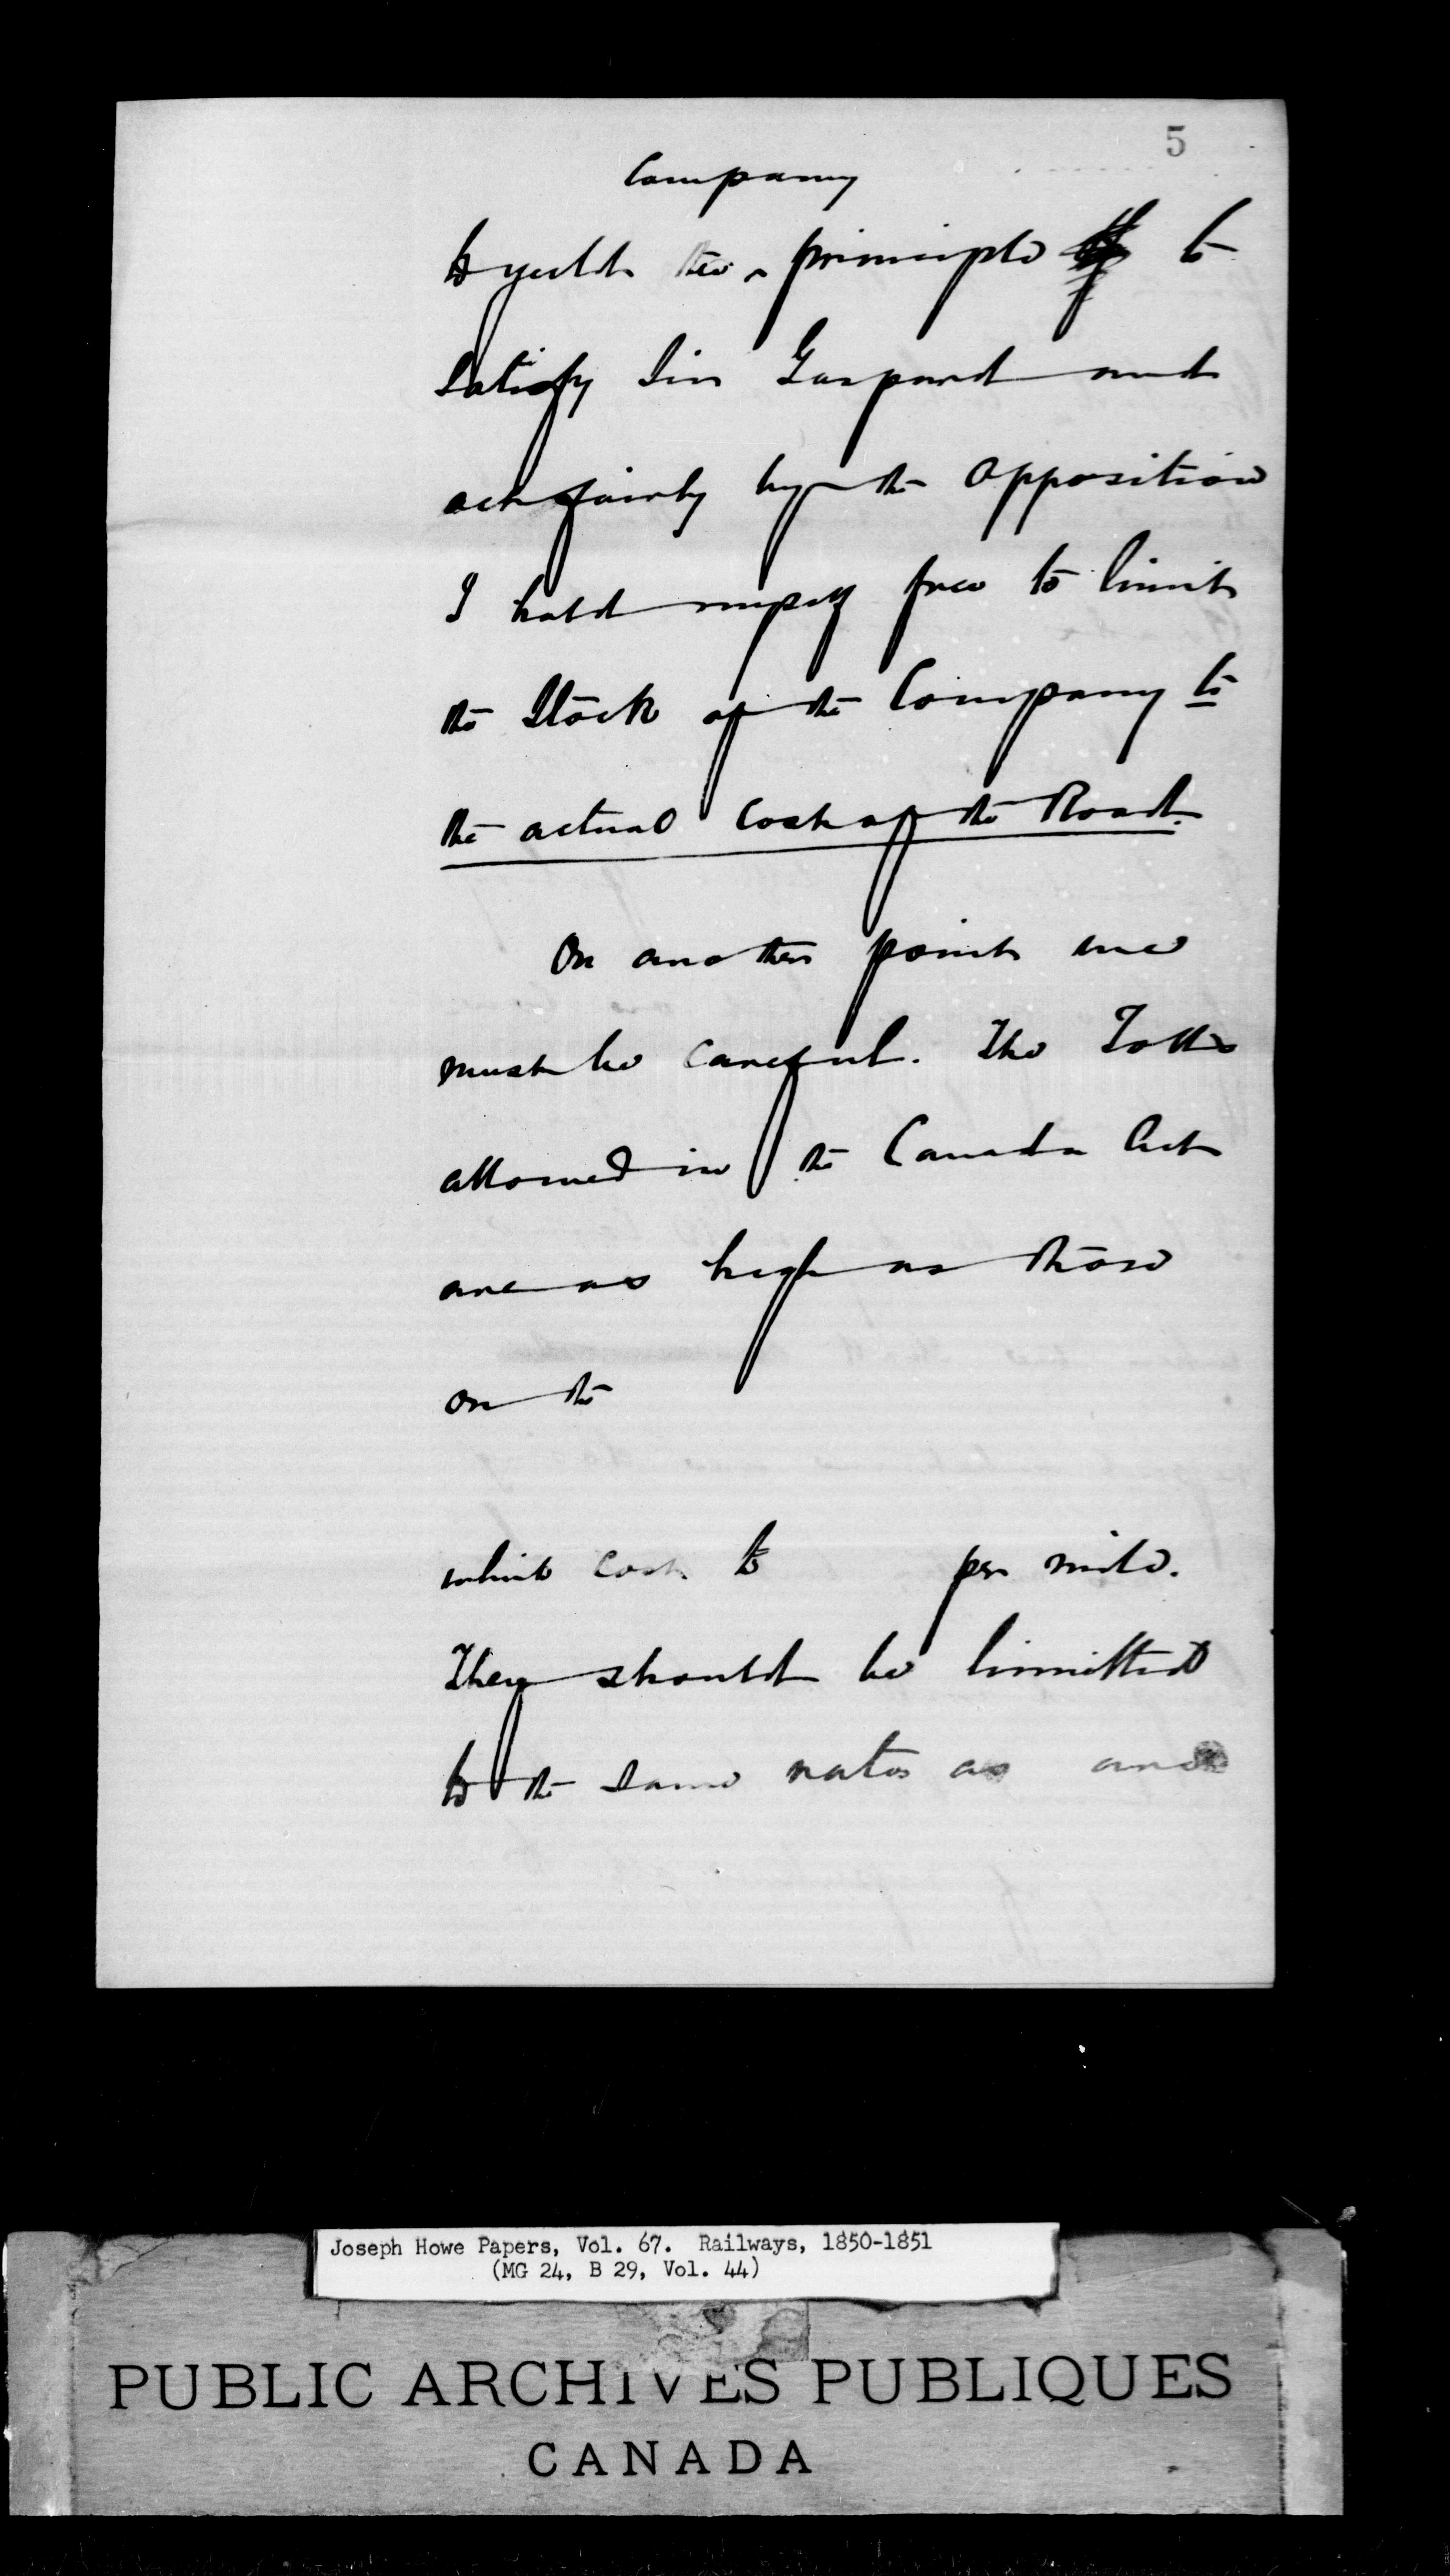 5
Company
to yield the ^ principle to
Satisfy Sir Gaspard and
act fairly by the Opposition
I hold myself free to limit
the Stock of the Company to
the actual Cost of the Road.
On another point we
must be careful. The Tolls
allowed in the Canada Act
are as high as those
on the
which cost £ per mile.
They should be limitted
to the same rates as are
Joseph Howe Papers, Vol. 67. Railways, 1850-1851
(MG 24, B 29, Vol. 44)
PUBLIC ARCHIVES PUBLIQUES
CANADA